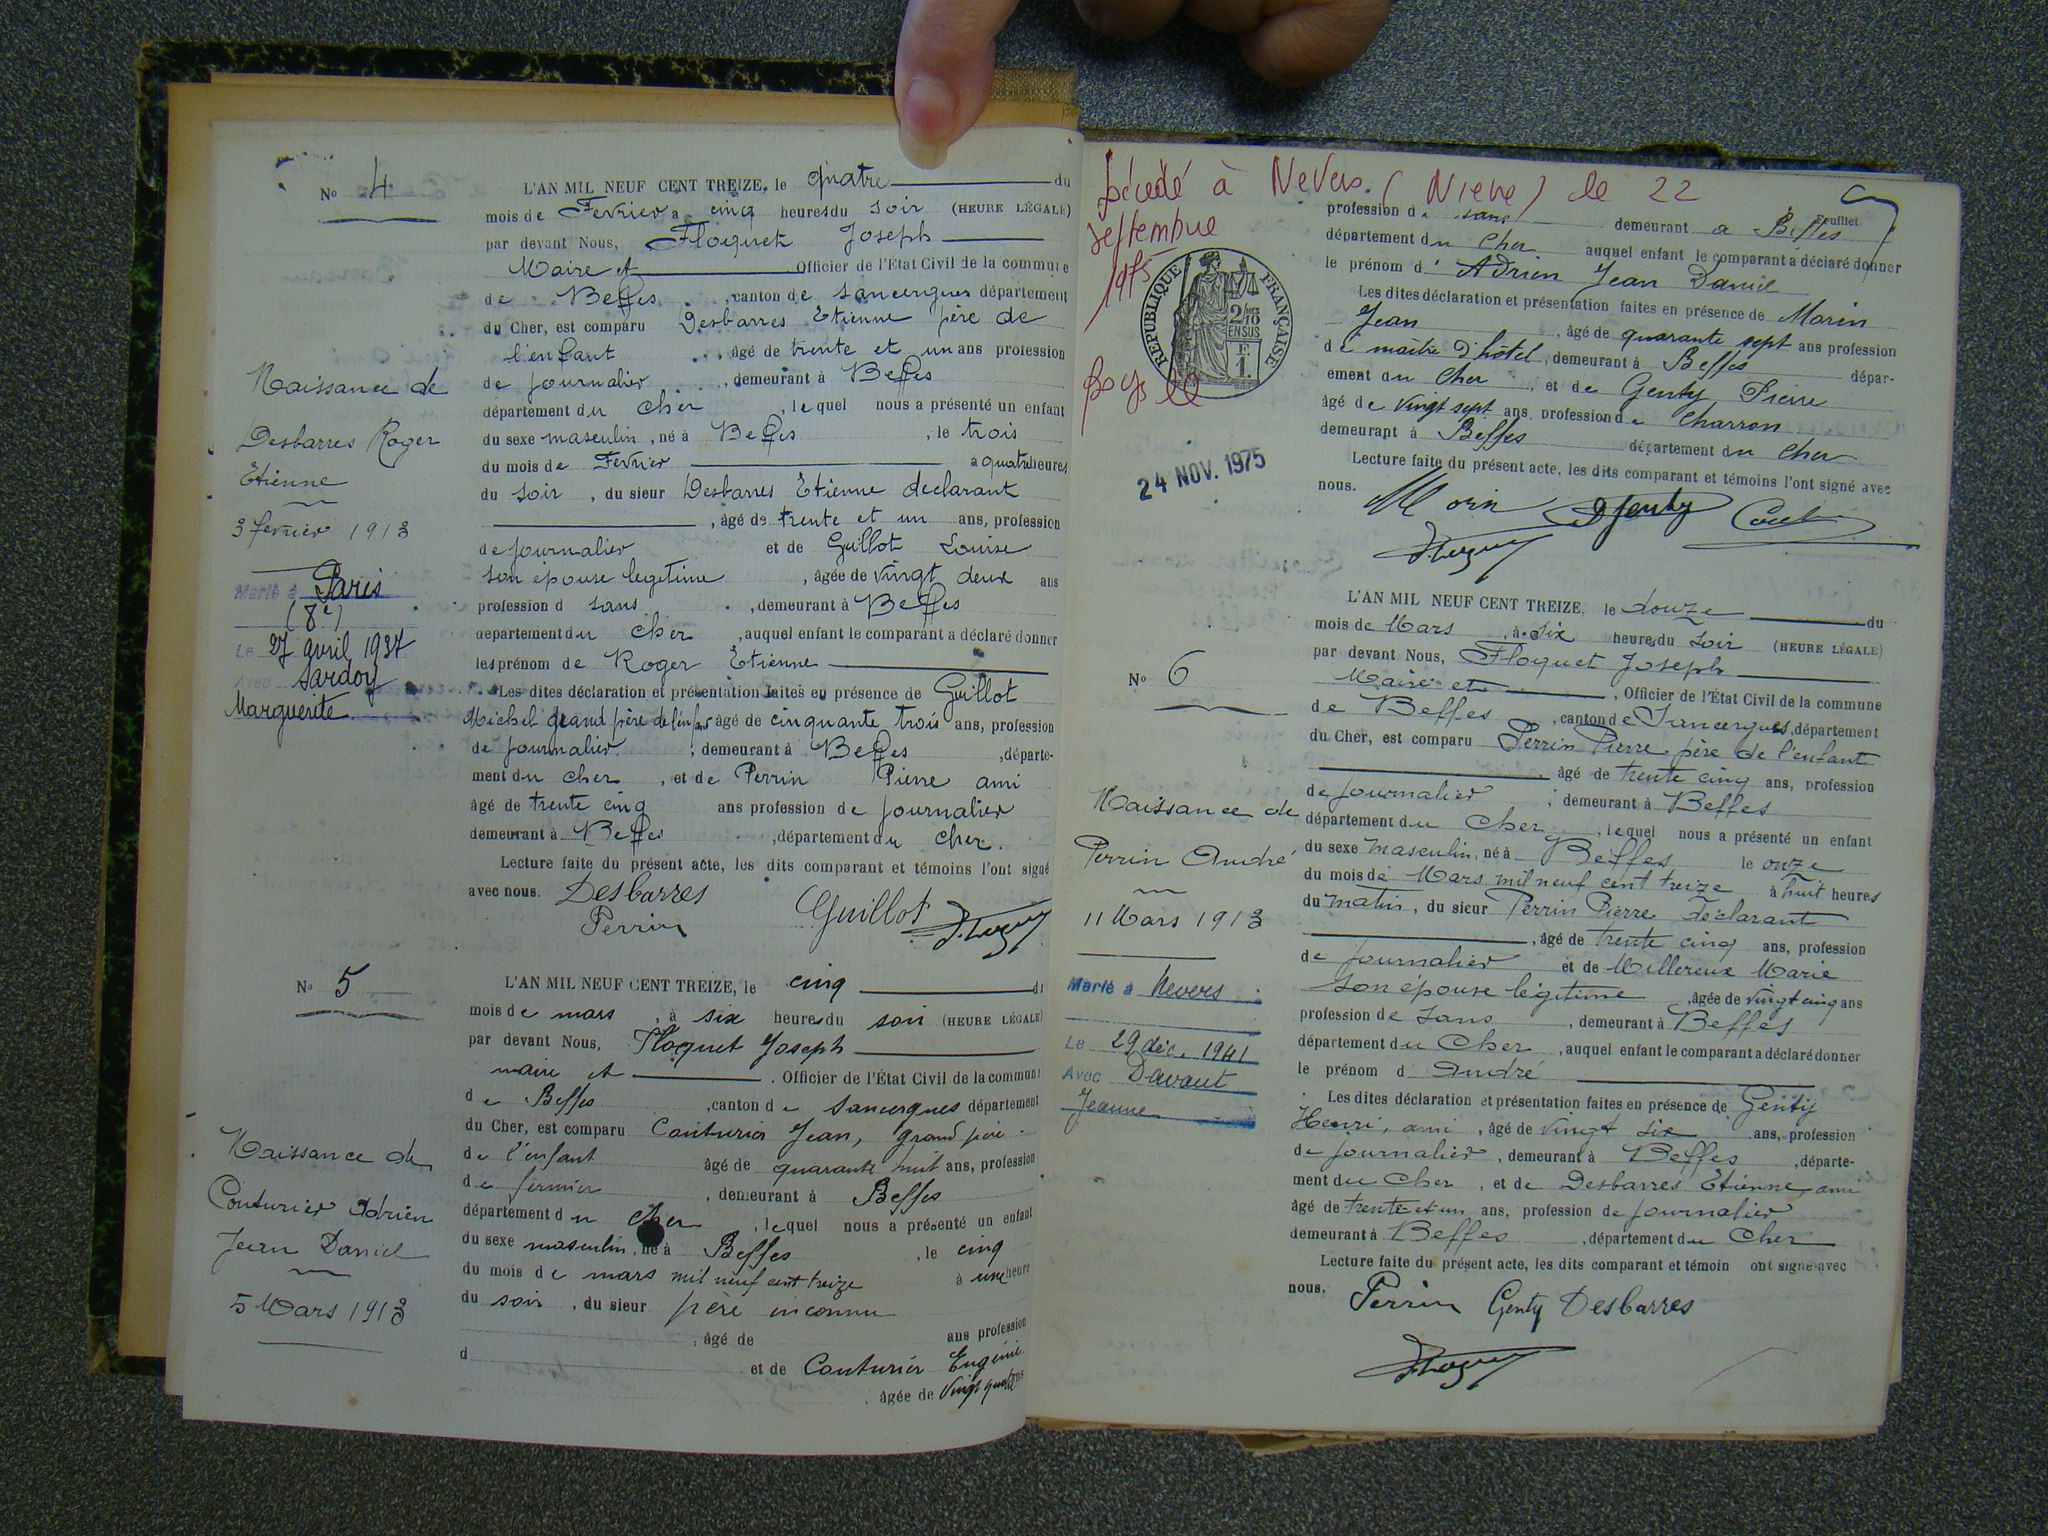 No 4
L'AN MIL NEUF CENT TREIZE, le quatre du
mois de Fevrier a cinq heures du soir (HEURE LÉGALE)
par devant Nous, Floquet Joseph
Maire et Officier de l'État Civil de la commune
de Beffes, canton de Sancergues département
du Cher, est comparu Desbarres Etienne père de
l'enfant âgé de trente et un ans profession
de journalier, demeurant à Beffes
département du Cher, lequel nous a présenté un enfant
du sexe masculin, né à Beffes, le trois
du mois de Fevrier à quatre heures
du soir, du sieur Desbarres Etienne declarant
, âgé de trente et un ans, profession
de journalier et de Guillot Louise
son épouse legitime, âgée de vingt deux ans
profession d sans, demeurant à Beffes
département du Cher, auquel enfant le comparant a déclaré donner
les prénom de Roger Etienne
Les dites déclaration et présentation faites en présence de Guillot
Michel grand père de l'enfant âgé de cinquante trois ans, profession
de journalier, demeurant à Beffes, départe-
ment du Cher, et de Perrin Pierre ami
âgé de trente cinq ans profession de journalier
demeurant à Beffes, département du Cher.
Lecture faite du présent acte, les dits comparant et témoins l'ont signé
avec nous. Desbarres
Perrin Guillot
Naissance de
Desbarres Roger
Etienne
3 fevrier 1913
Marié à Paris
(8e)
Le 27 avril 1937
Avec Sardoy
Marguerite
No 5
L'AN MIL NEUF CENT TREIZE, le cinq du
mois de mars, à six heures du soir (HEURE LÉGALE)
par devant Nous, Floquet Joseph
maire et Officier de l'État Civil de la commune
de Beffes, canton de Sancergues département
du Cher, est comparu Couturier Jean, grand père
de l'enfant âgé de quarante huit ans, profession
de fermier, demeurant à Beffes
département du Cher, lequel nous a présenté un enfant
du sexe masculin, né à Beffes, le cinq
du mois de mars mil neuf cent treize à une heure
du soir, du sieur père inconnu
, âgé de ans profession
d et de Couturier Eugénie
, âgée de vingt quatre ans
Naissance de
Couturier Adrien
Jean Daniel
5 Mars 1913
Décédé à Nevers (Nievre) le 22
septembre
1975
RÉPUBLIQUE FRANÇAISE
2/10 EN SUS
24 NOV. 1975
Feuillet
profession de sans demeurant à Beffes
département du Cher auquel enfant le comparant a déclaré donner
le prénom d' Adrien Jean Daniel
Les dites déclaration et présentation faites en présence de Morin
Jean, âgé de quarante sept ans profession
de maître d'hôtel, demeurant à Beffes dépar-
ement du Cher, et de Genty Pierre
âgé de vingt sept ans, profession de Charron
demeurant à Beffes département du Cher
Lecture faite du présent acte, les dits comparant et témoins l'ont signé avec
nous. Morin Genty
No 6
L'AN MIL NEUF CENT TREIZE, le douze du
mois de Mars, à six heures du soir (HEURE LÉGALE)
par devant Nous, Floquet Joseph
Maire et, Officier de l'État Civil de la commune
de Beffes, canton de Sancergues, département
du Cher, est comparu Perrin Pierre père de l'enfant
âgé de trente cinq ans, profession
de journalier, demeurant à Beffes
département du Cher, lequel nous a présenté un enfant
du sexe masculin, né à Beffes le onze
du mois de Mars mil neuf cent treize à huit heures
du matin, du sieur Perrin Pierre déclarant
, âgé de trente cinq ans, profession
de journalier et de Millereux Marie
son épouse légitime, âgée de vingt cinq ans
profession de sans, demeurant à Beffes
département du Cher, auquel enfant le comparant a déclaré donner
le prénom d André
Les dites déclaration et présentation faites en présence de Genty
Henri, ami, âgé de vingt six ans, profession
de journalier, demeurant à Beffes, départe-
ment du Cher, et de Desbarres Etienne, ami
âgé de trente et un ans, profession de journalier
demeurant à Beffes, département du Cher
Lecture faite du présent acte, les dits comparant et témoin ont signé avec
nous. Perrin Genty Desbarres
Naissance de
Perrin André
11 Mars 1913
Marié à Nevers
Le 29 déc. 1941
Avec Davaut
Jeanne